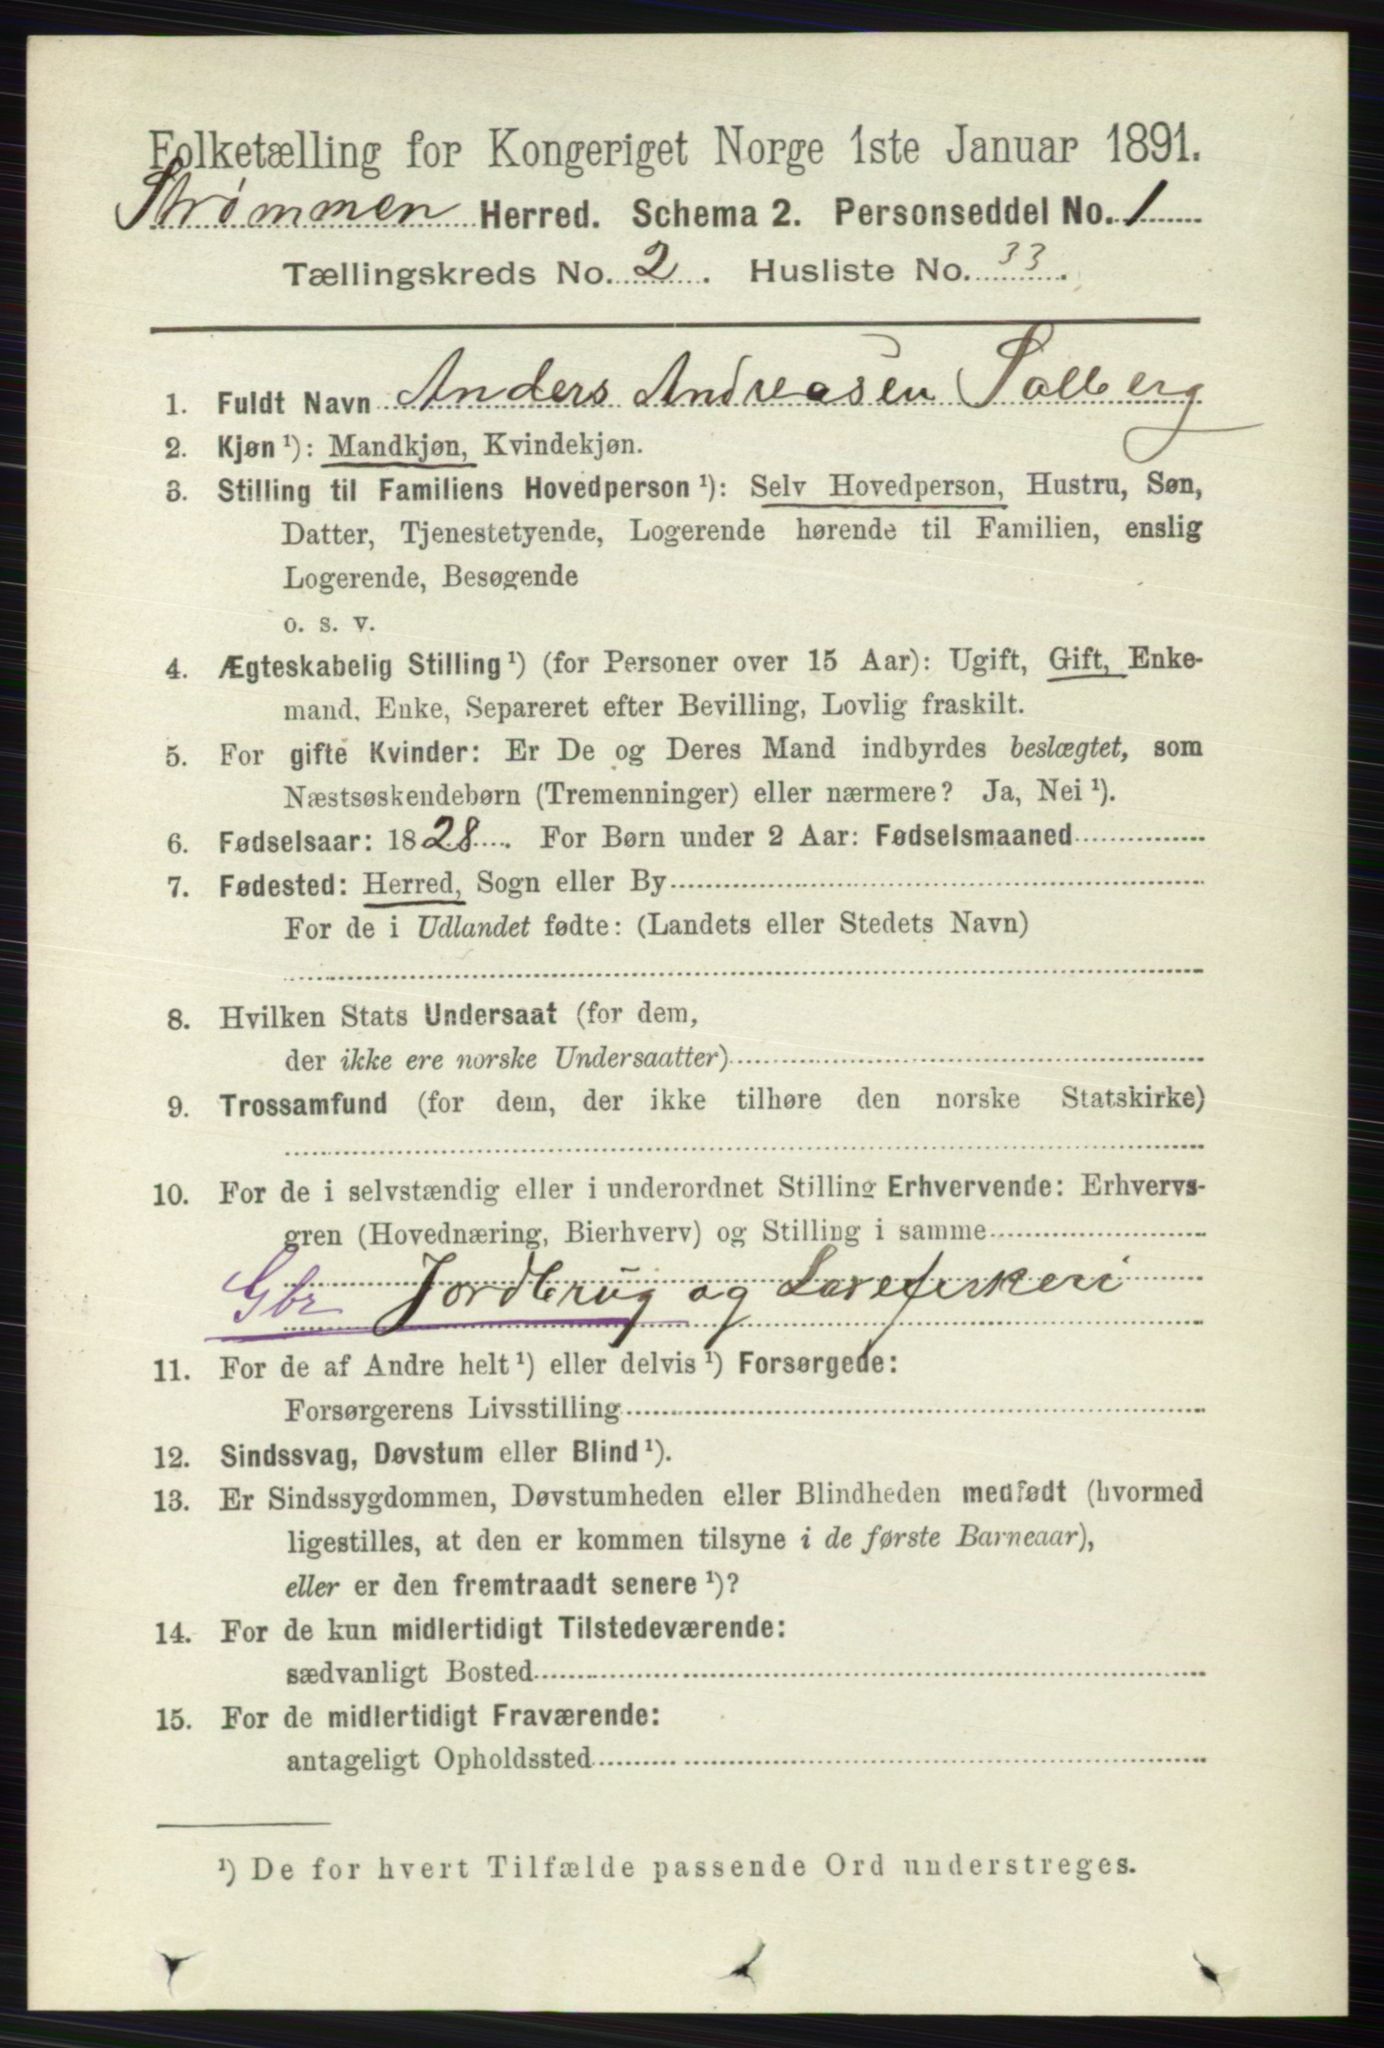 Folketælling for Kongeriget Norge 1ste Januar 1891.
Strømmen Herred. Schema 2. Personseddel No. 1
Tællingskreds No. 2. Husliste No. 33.
1. Fuldt Navn Anders Andreasen Solberg
2. Kjøn ¹): Mandkjøn, Kvindekjøn.
3. Stilling til Familiens Hovedperson ¹): Selv Hovedperson, Hustru, Søn,
Datter, Tjenestetyende, Logerende hørende til Familien, enslig
Logerende, Besøgende
o. s. v.
4. Ægteskabelig Stilling ¹) (for Personer over 15 Aar): Ugift, Gift, Enke-
mand, Enke, Separeret efter Bevilling, Lovlig fraskilt.
5. For gifte Kvinder: Er De og Deres Mand indbyrdes beslægtet, som
Næstsøskendebørn (Tremenninger) eller nærmere? Ja, Nei ¹).
6. Fødselsaar: 1828. For Børn under 2 Aar: Fødselsmaaned
7. Fødested: Herred, Sogn eller By
For de i Udlandet fødte: (Landets eller Stedets Navn)
8. Hvilken Stats Undersaat (for dem,
der ikke ere norske Undersaatter)
9. Trossamfund (for dem, der ikke tilhøre den norske Statskirke)
10. For de i selvstændig eller i underordnet Stilling Erhvervende: Erhvervs-
gren (Hovednæring, Bierhverv) og Stilling i samme
Gbr Jordbrug og Laxefiskeri
11. For de af Andre helt ¹) eller delvis ¹) Forsørgede:
Forsørgerens Livsstilling
12. Sindssvag, Døvstum eller Blind ¹).
13. Er Sindssygdommen, Døvstumheden eller Blindheden medfødt (hvormed
ligestilles, at den er kommen tilsyne i de første Barneaar),
eller er den fremtraadt senere ¹)?
14. For de kun midlertidigt Tilstedeværende:
sædvanligt Bosted
15. For de midlertidigt Fraværende:
antageligt Opholdssted
¹) De for hvert Tilfælde passende Ord understreges.